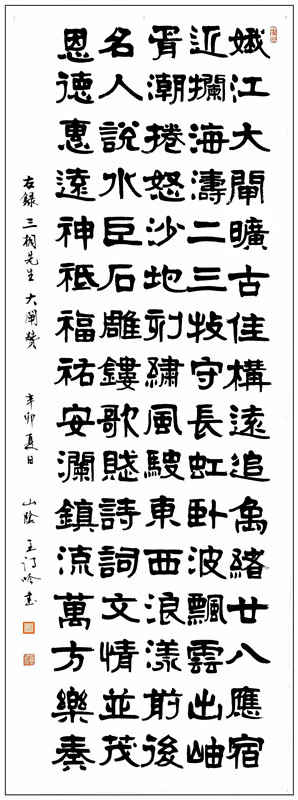 娥江大閘曠古佳構遠追禹緒廿八應宿
近攔海濤二三牧守長虹臥波飄雲出岫
胥潮捲怒沙地刺繡風駛東西浪漾前後
名人說水巨石雕鏤歌賦詩詞文情並茂
恩德惠遠神祇福祐安瀾鎮流萬方樂奏
右錄三桐先生大閘贊 辛卯夏日 山陰王汀